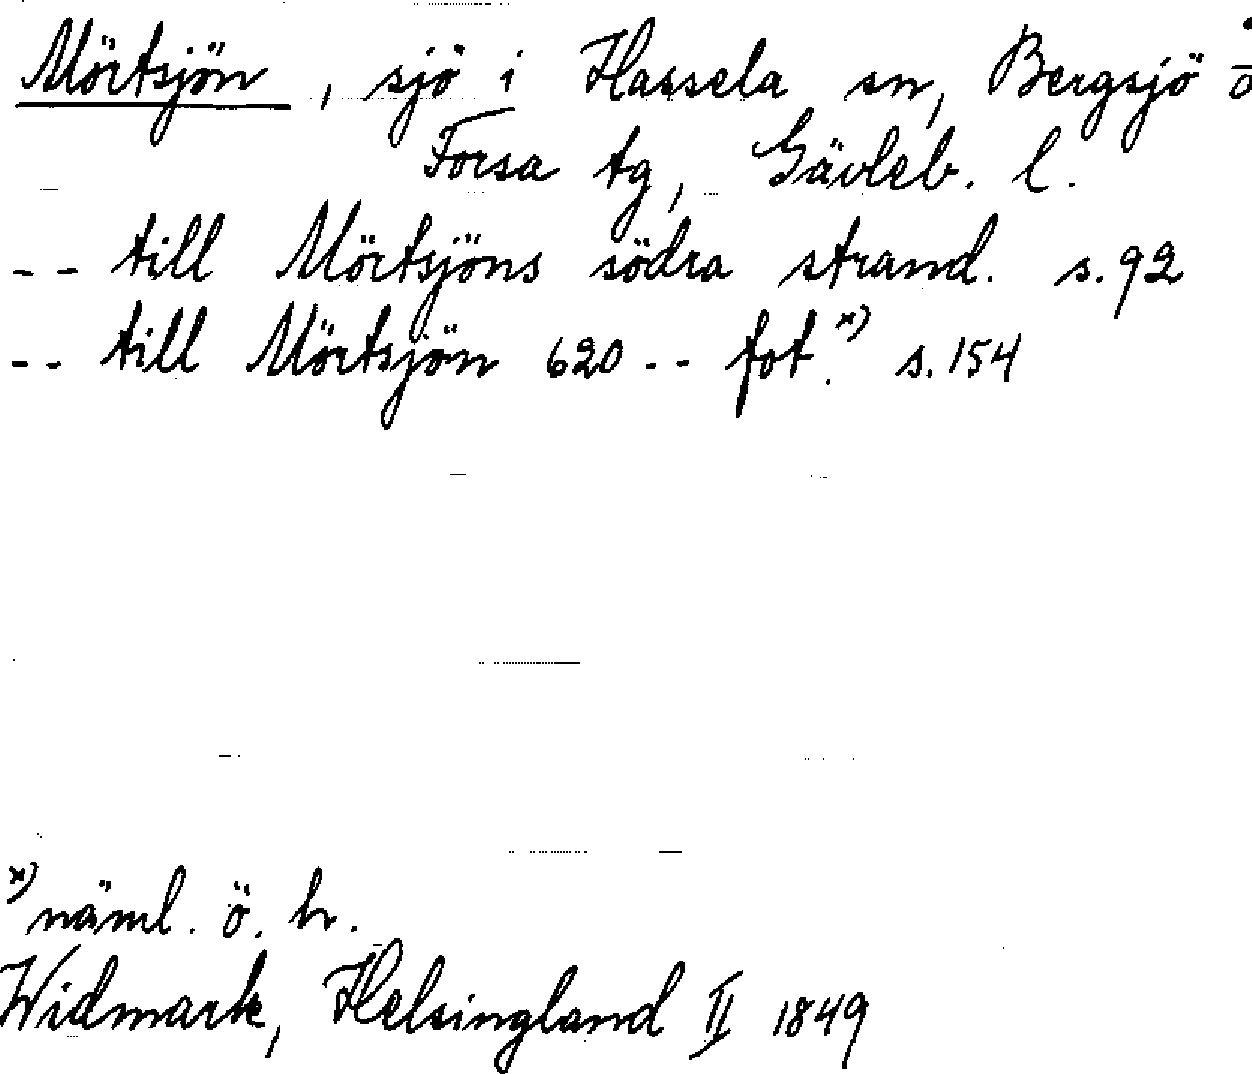 Mörtsjön, sjö i Hassela sn, Bergsjö o
Forsa tg, Gävleb. l.
-- till Mörtsjöns södra strand. s. 92
-- till Mörtsjön 620 -- fot. x) s. 154
x) näml. ö. h.
Widmark, Helsingland II 1849